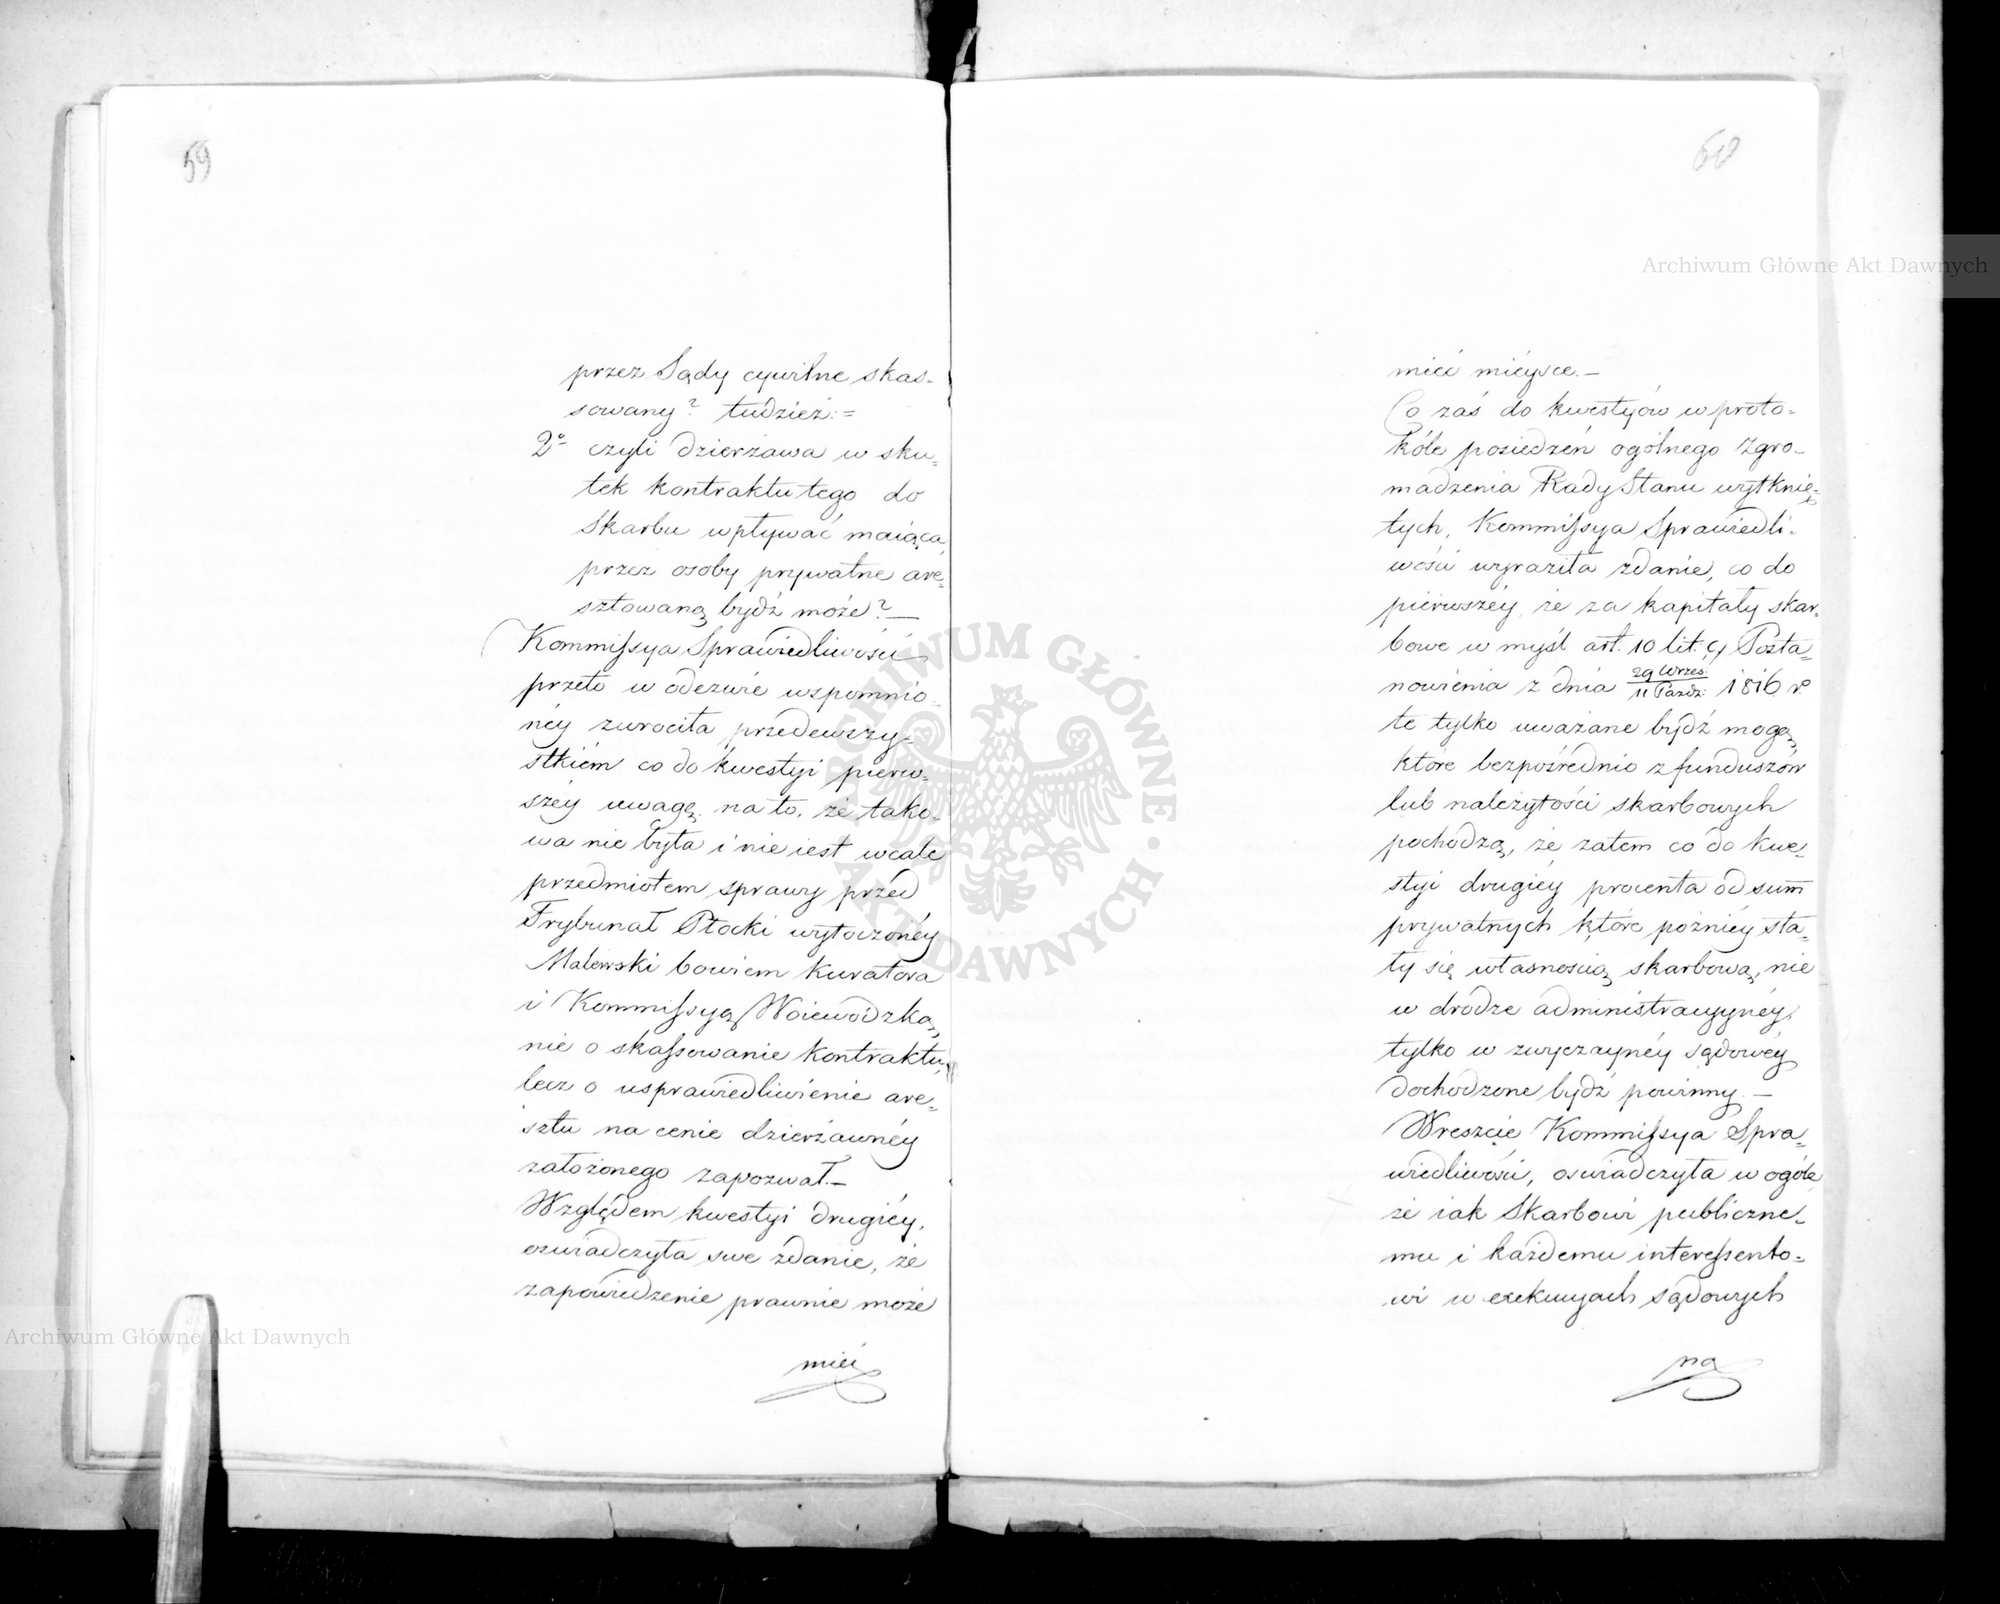 59
przez Sądy cywilne skas-
sowany? tudzież:=
2o czyli dzierżawa w sku-
tek kontraktu tego do
Skarbu wpływać maiąca,
przez osoby prywatne are-
sztowaną bydź może?—
Kommissya Sprawiedliwości
przeto w odezwie wspomnio-
néy zwrociła przedewszy-
stkiém co do kwestyi pierw-
széy uwagę na to, że tako-
wa nie była i nie iest wcale
przedmiotem sprawy przed
Trybunał Płocki wytoczonéy
Malewski bowiem kuratora
i Kommissyą Woiewódzką,
nie o skassowanie kontraktu,
lecz o usprawiedliwienie are-
sztu na cenie dzierżawnéy
założonego zapozwał.—
Względem kwestyi drugiéy,
oświadczyła swe zdanie, że
zapowiedzenie prawnie może
mieć
60
mieć miéysce.—
Co zaś do kwestyów w proto-
kóle posiedzeń ogólnego Zgro-
madzenia Rady Stanu wytknię-
tych, Kommissya Sprawiedli-
wości wyraziła zdanie, co do
pierwszéy, że za kapitały skar-
bowe w myśl art. 10 lit. c, Posta-
nowienia z dnia 29 Wrześ:/11 Paźdz: 1816 r.
te tylko uważane bydź mogą,
które bezpośrednio z funduszów
lub należytości skarbowych
pochodzą, że zatem co do kwe-
styi drugiéy procenta od summ
prywatnych które poźniéy sta-
ły się własnością skarbową, nie
w drodze administracyynéy,
tylko w zwyczaynéy sądowéy
dochodzone bydź powinny.—
Wreszcie Kommissya Spra-
wiedliwości, oświadczyła w ogóle
że iak Skarbowi publiczne-
mu i każdemu interessento-
wi w exekucyach sądowych
na
Archiwum Główne Akt Dawnych
Archiwum Główne Akt Dawnych
ARCHIWUM GŁÓWNE · AKT DAWNYCH ·